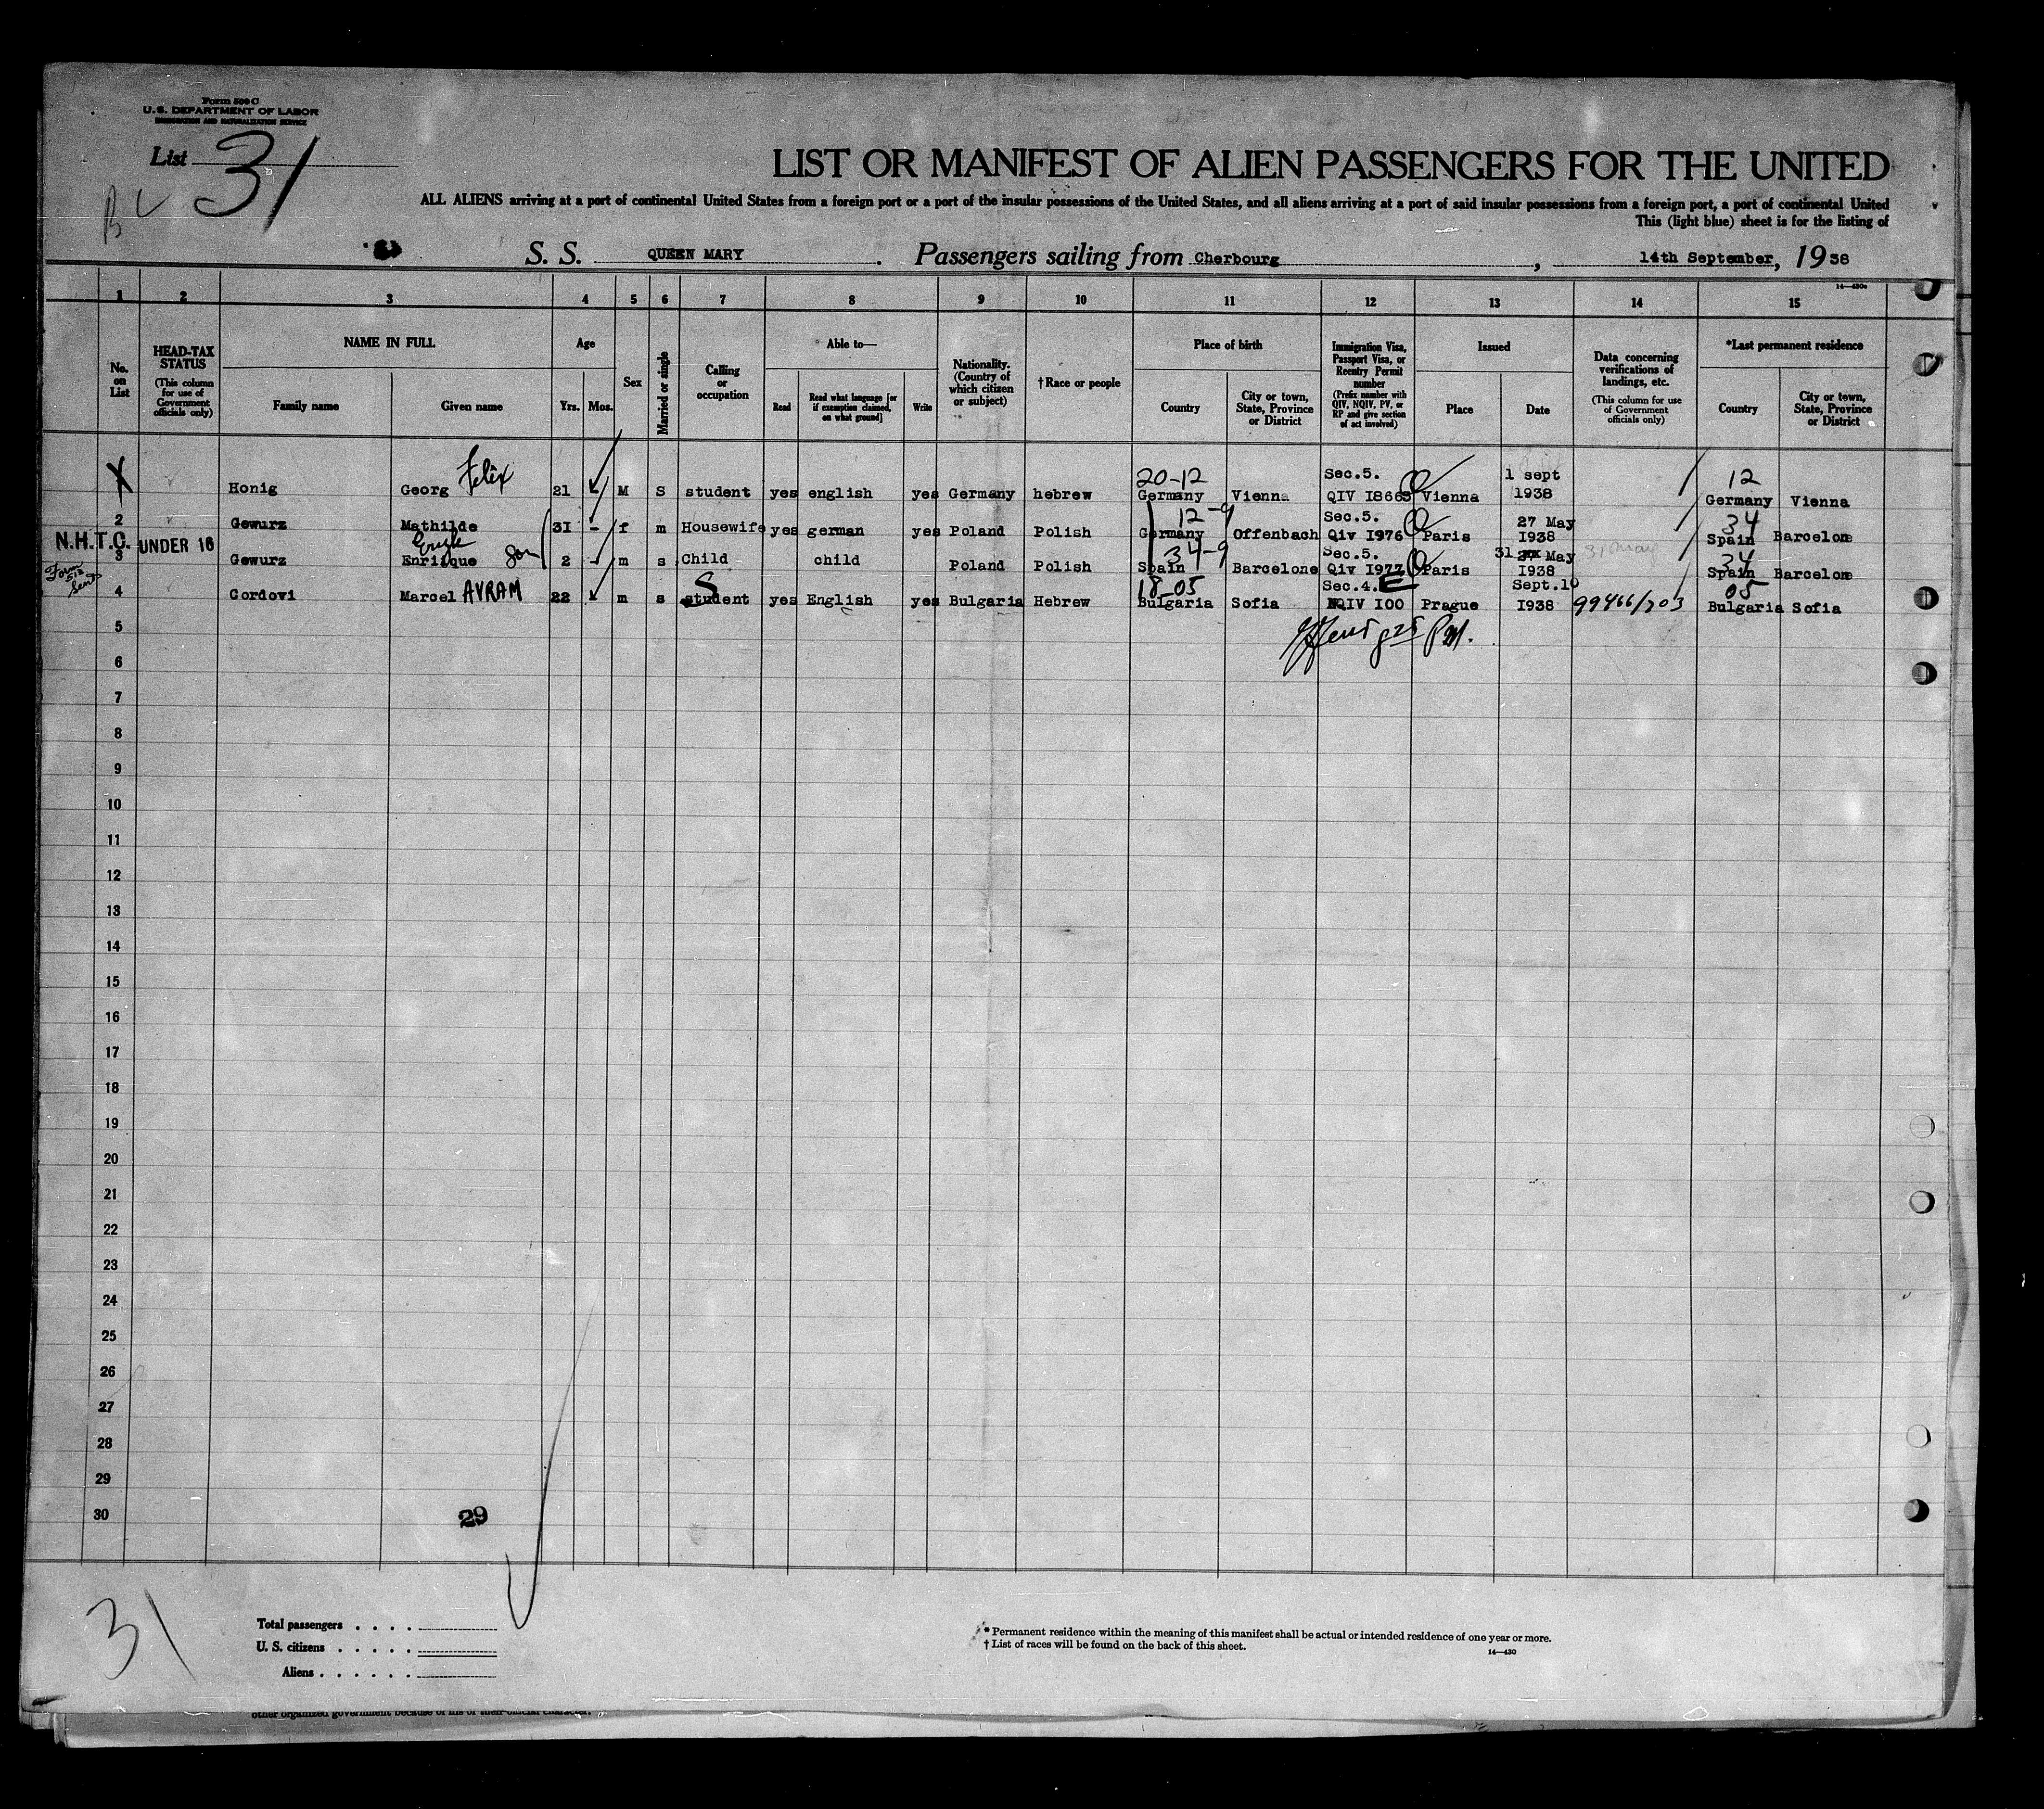 Form 500 C
U. S. DEPARTMENT OF LABOR
IMMIGRATION AND NATURALIZATION SERVICE
List 31
LIST OR MANIFEST OF ALIEN PASSENGERS FOR THE UNITED
ALL ALIENS arriving at a port of continental United States from a foreign port or a port of the insular possessions of the United States, and all aliens arriving at a port of said insular possessions from a foreign port, a port of continental United
This (light blue) sheet is for the listing of
S. S. QUEEN MARY. Passengers sailing from Cherbourg, 14th September, 1938
14—430a
1 2 3 4 5 6 7 8 9 10 11 12 13 14 15
No. on List
HEAD-TAX STATUS (This column for use of Government officials only)
NAME IN FULL
Family name Given name
Age
Yrs. Mos.
Sex
Married or single
Calling or occupation
Able to—
Read Read what language [or if exemption claimed, on what ground] Write
Nationality. (Country of which citizen or subject)
†Race or people
Place of birth
Country City or town, State, Province or District
Immigration Visa, Passport Visa, or Reentry Permit number (Prefix number with QIV, NQIV, PV, or RP and give section of act involved)
Issued
Place Date
Data concerning verifications of landings, etc. (This column for use of Government officials only)
*Last permanent residence
Country City or town, State, Province or District
Felix 20-12 Sec.5. 1 sept 12
X Honig Georg 21 - M S student yes english yes Germany hebrew Germany Vienna QIV I8663 Vienna 1938 Germany Vienna
12-9 Sec.5. 27 May 34
2 Gewurz Mathilde 3I - f m Housewife yes german yes Poland Polish Germany Offenbach Qiv I976 Paris I938 Spain Barcelone
N.H.T.C. UNDER 16 son 34-9 Sec.5. 31 May 31 May 34
3 Gewurz Enrisque 2 - m s Child child Poland Polish Spain Barcelone Qiv I977 Paris I938 Spain Barcelone
Form 513 Sent 18-05 Sec.4.E Sept.10 05
4 Cordovi Marcel AVRAM 22 m s student yes English yes Bulgaria Hebrew Bulgaria Sofia NQIV I00 Prague I938 99466/203 Bulgaria Sofia
5
6
7
8
9
10
11
12
13
14
15
16
17
18
19
20
21
22
23
24
25
26
27
28
29
30
29
31
Total passengers . . . .
U. S. citizens . . . . .
Aliens . . . . . .
* Permanent residence within the meaning of this manifest shall be actual or intended residence of one year or more.
† List of races will be found on the back of this sheet.
14—430
other organized government because of his or their official character.